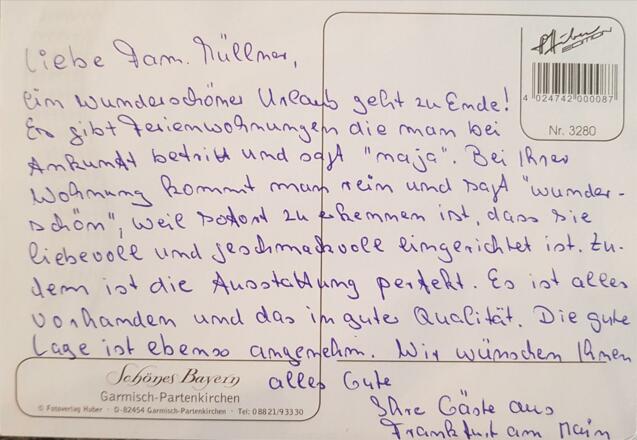 Liebe Fam. Müllner,
ein wunderschöner Urlaub geht zu Ende!
Es gibt Ferienwohnungen die man bei
Ankunft betritt und sagt "naja". Bei Ihrer
Wohnung kommt man rein und sagt "wunder-
schön", weil sofort zu erkennen ist, dass sie
liebevoll und geschmackvoll eingerichtet ist. Zu-
dem ist die Ausstattung perfekt. Es ist alles
vorhanden und das in guter Qualität. Die gute
Lage ist ebenso angenehm. Wir wünschen Ihnen
alles Gute
Ihre Gäste aus
Frankfurt am Main
Huber
EDITION
4 024742 000087
Nr. 3280
Schönes Bayern
Garmisch-Partenkirchen
© Fotoverlag Huber · D-82454 Garmisch-Partenkirchen · Tel: 08821/93330